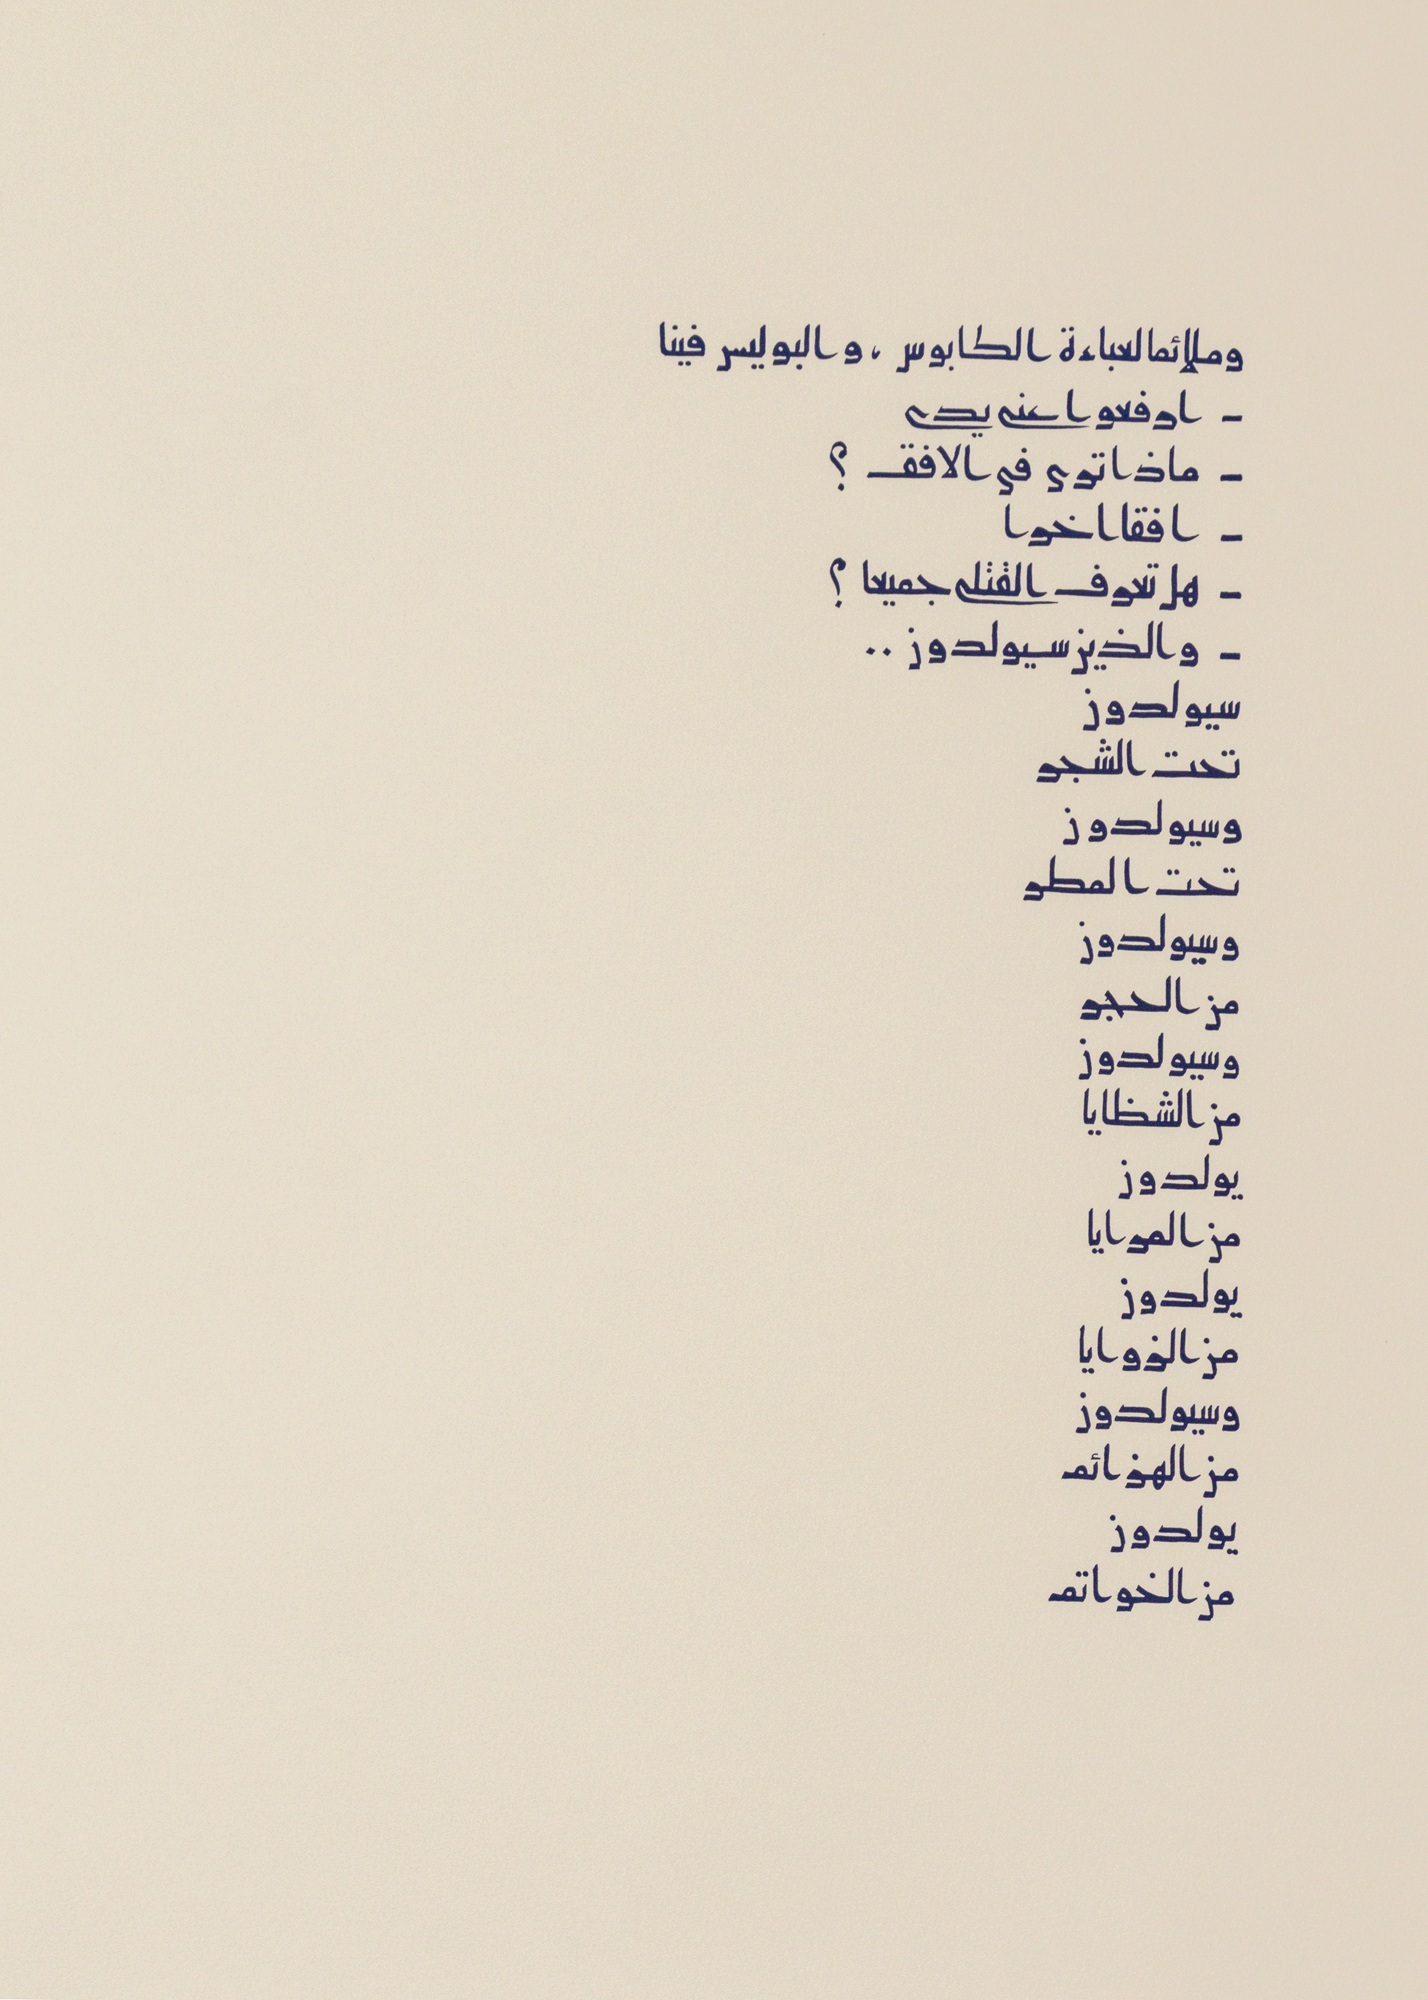 وملائما لعباءة الكابوس ، والبوليس فينا
- ارفعوا عني يدي
- ماذا ترى في الافق ؟
- افقا اخرا
- هل تعرف القتلى جميعا ؟
- والذين سيولدون ..
سيولدون
تحت الشجر
وسيولدون
تحت المطر
وسيولدون
من الحجر
وسيولدون
من الشظايا
يولدون
من المرايا
يولدون
من الزوايا
وسيولدون
من الهزائم
يولدون
من الخواتم